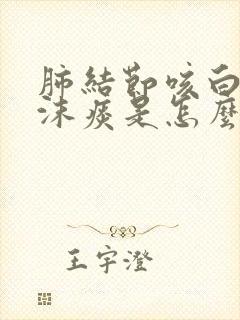 肺結節咳白
沫痰是怎麼
王宇澄